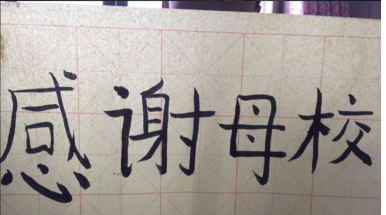 感谢母校